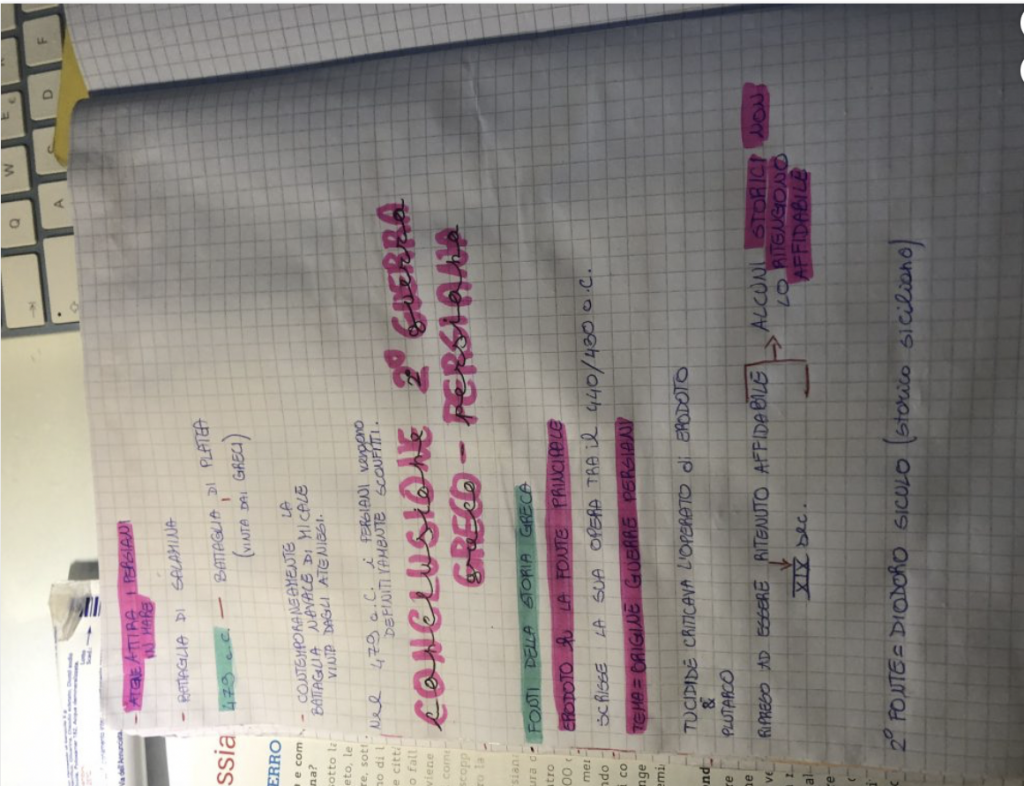 - ATENE ATTIRA I PERSIANI
IN MARE
- BATTAGLIA DI SALAMINA
479 a.C. — BATTAGLIA DI PLATEA
(VINTA DAI GRECI)
- CONTEMPORANEAMENTE LA
BATTAGLIA NAVALE DI MICALE
VINTA DAGLI ATENIESI.
Nel 479 a.C. i PERSIANI vengono
DEFINITIVAMENTE SCONFITTI.
CONCLUSIONE 2° GUERRA
conclusione 2° guerra
GRECO - PERSIANA
greco - persiana
- FONTI DELLA STORIA GRECA
ERODOTO è LA FONTE PRINCIPALE
SCRISSE LA SUA OPERA TRA il 440/430 a.C.
TEMA = ORIGINE GUERRE PERSIANI
TUCIDIDE CRITICAVA L'OPERATO di ERODOTO
&
PLUTARCO
RIPRESO AD ESSERE RITENUTO AFFIDABILE → ALCUNI STORICI NON
LO RITENGONO
AFFIDABILE
XIX sec.
2° FONTE = DIODORO SICULO (storico siciliano)
ssia
ERRO
e com
na?
sotto la
eto, le
re, sott
no di l
e citt
o fall
viene
com
scopp
Q
W
E
A
S
D
F